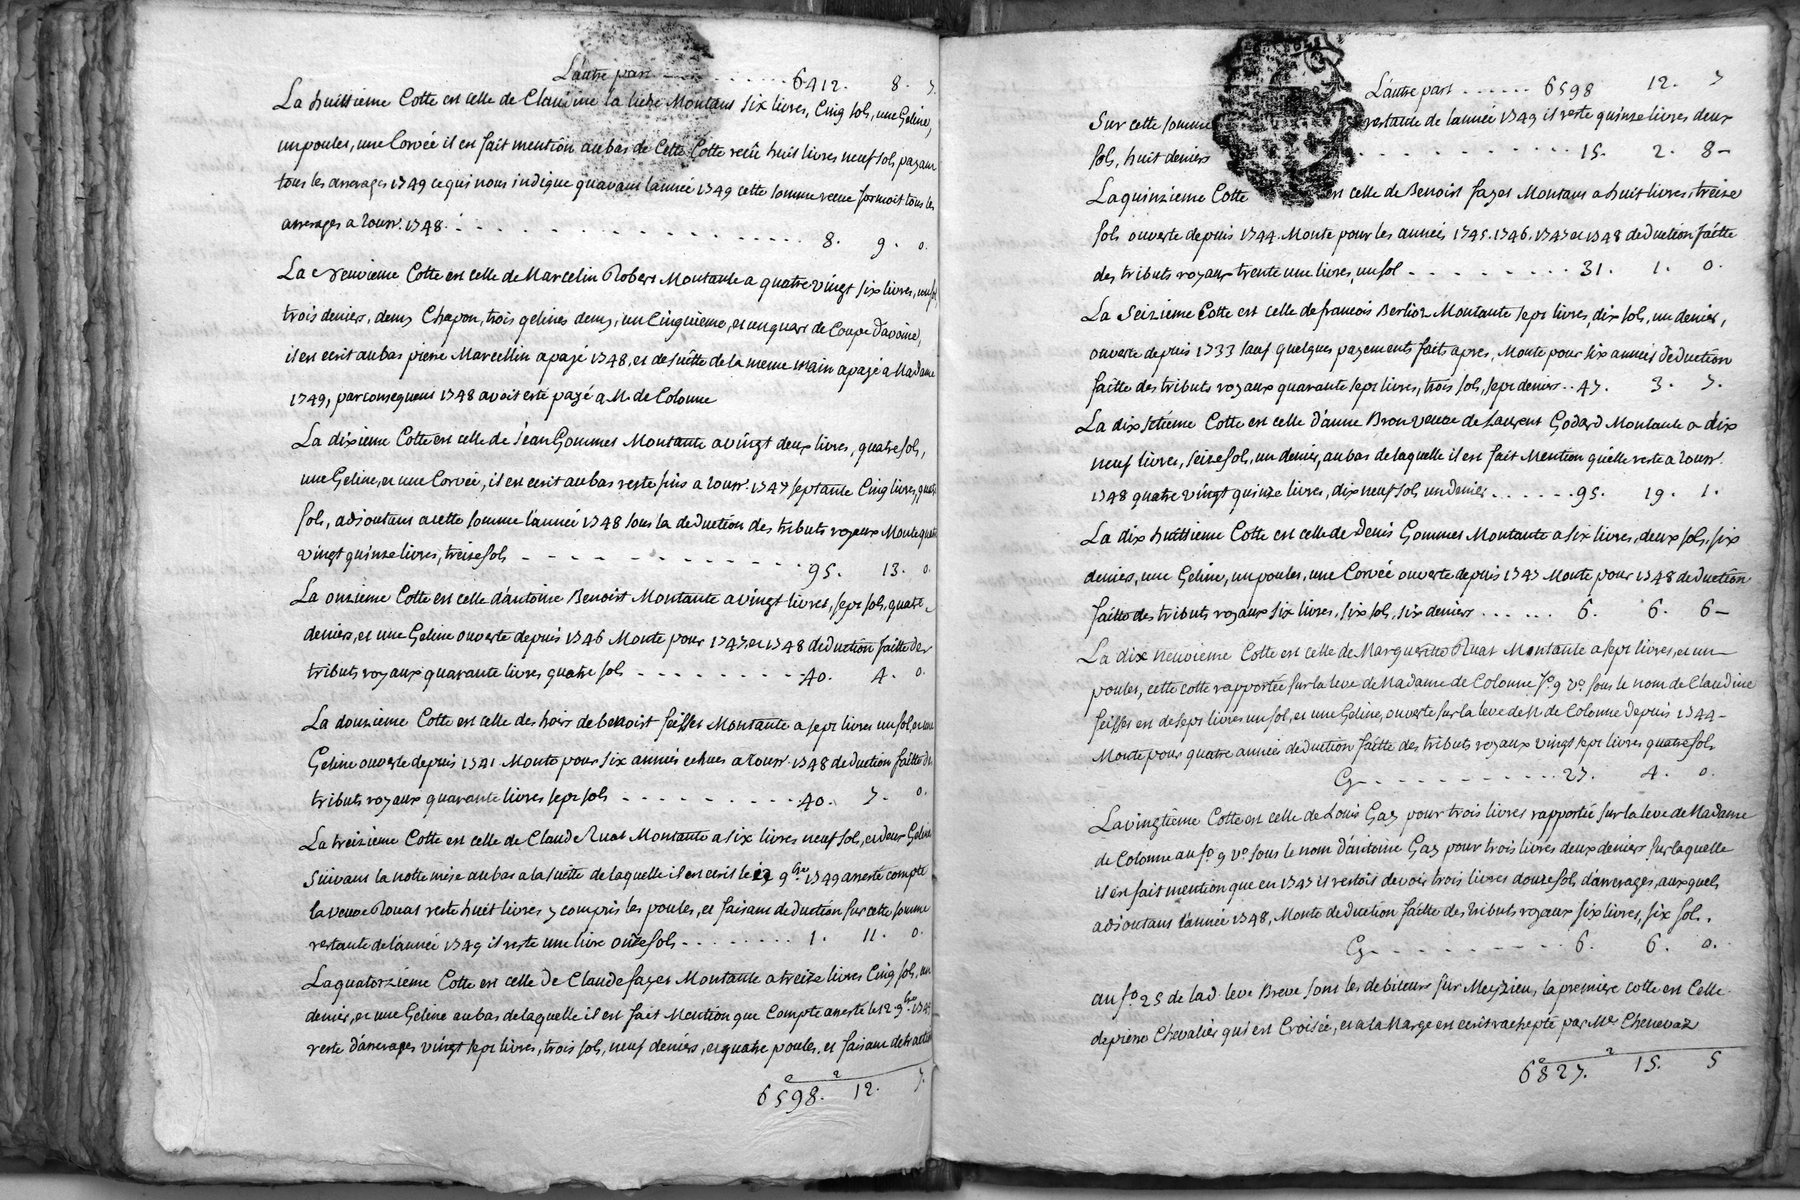 L'autre part - - - - - - 6412. 8. 7.
La huittieme Cotte est celle de Claudine la liche Montant six livres, Cinq sols, une Geline,
un poulet, une Corvée il est fait mention au bas de Cette Cotte reçû huit livres neuf sols payant
tous les arrerages 1749 ce qui nous indique qu'avant l'année 1749 cette somme reçue formoit tous les
arrerages a tourr. 1748. - - - - - 8. 9. 0.
La Neuvieme Cotte est celle de Marcelin Robert Montante a quatre vingt six livres, un sol
trois deniers, demy Chapon, trois gelines demy, un Cinquieme, et un quart de Coupe d'avoine,
il est ecrit au bas pierre Marcellin a payé 1748, et de suitte de la meme main a payé a Madame
1749, par consequent 1748 avoit esté payé a M. de Colonne
La dixieme Cotte est celle de Jean Gommet Montante a vingt deux livres, quatre sols,
une Geline, et une Corvée, il est ecrit au bas reste pris a tourr. 1747 septante Cinq livres, quatre
sols, adjoutant a cette somme l'année 1748 sous la deduction des tributs royaux Monte quatre
vingt quinze livres, treize sols - - - - - 95. 13. 0.
La onzieme Cotte est celle d'antoine Benoist Montante a vingt livres, sept sols, quatre
deniers, et une Geline ouverte depuis 1746 Monte pour 1747, et 1748 deduction faitte des
tributs royaux quarante livres quatre sols - - - - - 40. 4. 0.
La douzieme Cotte est celle des hoirs de benoist feisses Montante a sept livres un sol, et une
Geline ouverte depuis 1741 Monte pour six années echues a tourr. 1748 deduction faitte des
tributs royaux quarante livres sept sols - - - - - 40. 7. 0.
La treizieme Cotte est celle de Claude Ruat Montante a six livres neuf sols, et deux Gelines
Suivant la notte mise au bas a la suitte de laquelle il est ecrit le 9bre 1749 arresté compte
la veuve Rouat reste huit livres y compris les poules, et faisant deduction sur cette somme
restante de l'année 1749 il reste une livre onze sols - - - - - 1. 11. 0.
La quatorzieme Cotte est celle de Claude fayet Montante a treize livres Cinq sols, un
denier, et une Geline au bas de laquelle il est fait Mention que Compte arresté le 12 9bre 1749
reste d'arrerages vingt sept livres, trois sols, neuf deniers, et quatre poules, et faisant detraction
6598. 12. 7.
L'autre part - - - - - 6598 12. 7
Sur cette somme restante de l'année 1749 il reste quinze livres deux
sols, huit deniers - - - - - 15. 2. 8
La quinzieme Cotte est celle de Benoist fayet Montant a huit livres treize
sols ouverte depuis 1744. Monte pour les années 1745. 1746. 1747 et 1748 deduction faitte
des tributs royaux trente une livres, un sol - - - - - 31. 1. 0.
La Seizieme Cotte est celle de francois Berlioz Montante sept livres, dix sols, un denier,
ouverte depuis 1733 sauf quelques payements faits apres, Monte pour six années deduction
faitte des tributs royaux quarante sept livres, trois sols, sept deniers - - 47. 3. 7.
La dix setieme Cotte est celle d'anne Bron veuve de Laurent Godard Montante a dix
neuf livres, seize sols, un denier, au bas de laquelle il est fait Mention qu'elle reste a tourr.
1748 quatre vingt quinze livres, dix neuf sols un denier - - - - - 95. 19. 1.
La dix huittieme Cotte est celle de Denis Gommet Montante a six livres, deux sols, six
deniers, une Geline, un poulet, une Corvée ouverte depuis 1747 Monte pour 1748 deduction
faitte des tributs royaux six livres, six sols, six deniers - - - - - 6. 6. 6
La dix neuvieme Cotte est celle de Margueritte Ruat Montante a sept livres, et un
poulet, cette cotte rapportée sur la leve de Madame de Colonne fo. 9 vo. sous le nom de Claudine
feisses est de sept livres un sol, et une Geline, ouverte sur la leve de M. de Colonne depuis 1744
Monte pour quatre années deduction faitte des tributs royaux vingt sept livres quatre sols
Cy - - - - - 27. 4. 0.
La vingtieme Cotte est celle de Louis Gay pour trois livres rapportée sur la leve de Madame
de Colonne au fo. 9 vo. sous le nom d'antoine Gay pour trois livres deux deniers sur laquelle
il est fait mention que en 1747 il restoit devoir trois livres douze sols d'arrerages, auxquels
adjoutant l'année 1748, Monte deduction faitte des tributs royaux six livres, six sols.
Cy - - - - - 6. 6. 0.
au fo. 25 de lad. leve Breve sont les debiteurs sur Meyzieu, la premiere cotte est Celle
de pierre Chevalier qui est Croisée, et a la Marge est ecrit rachepté par Me Chenevaz
6827. 15. 5